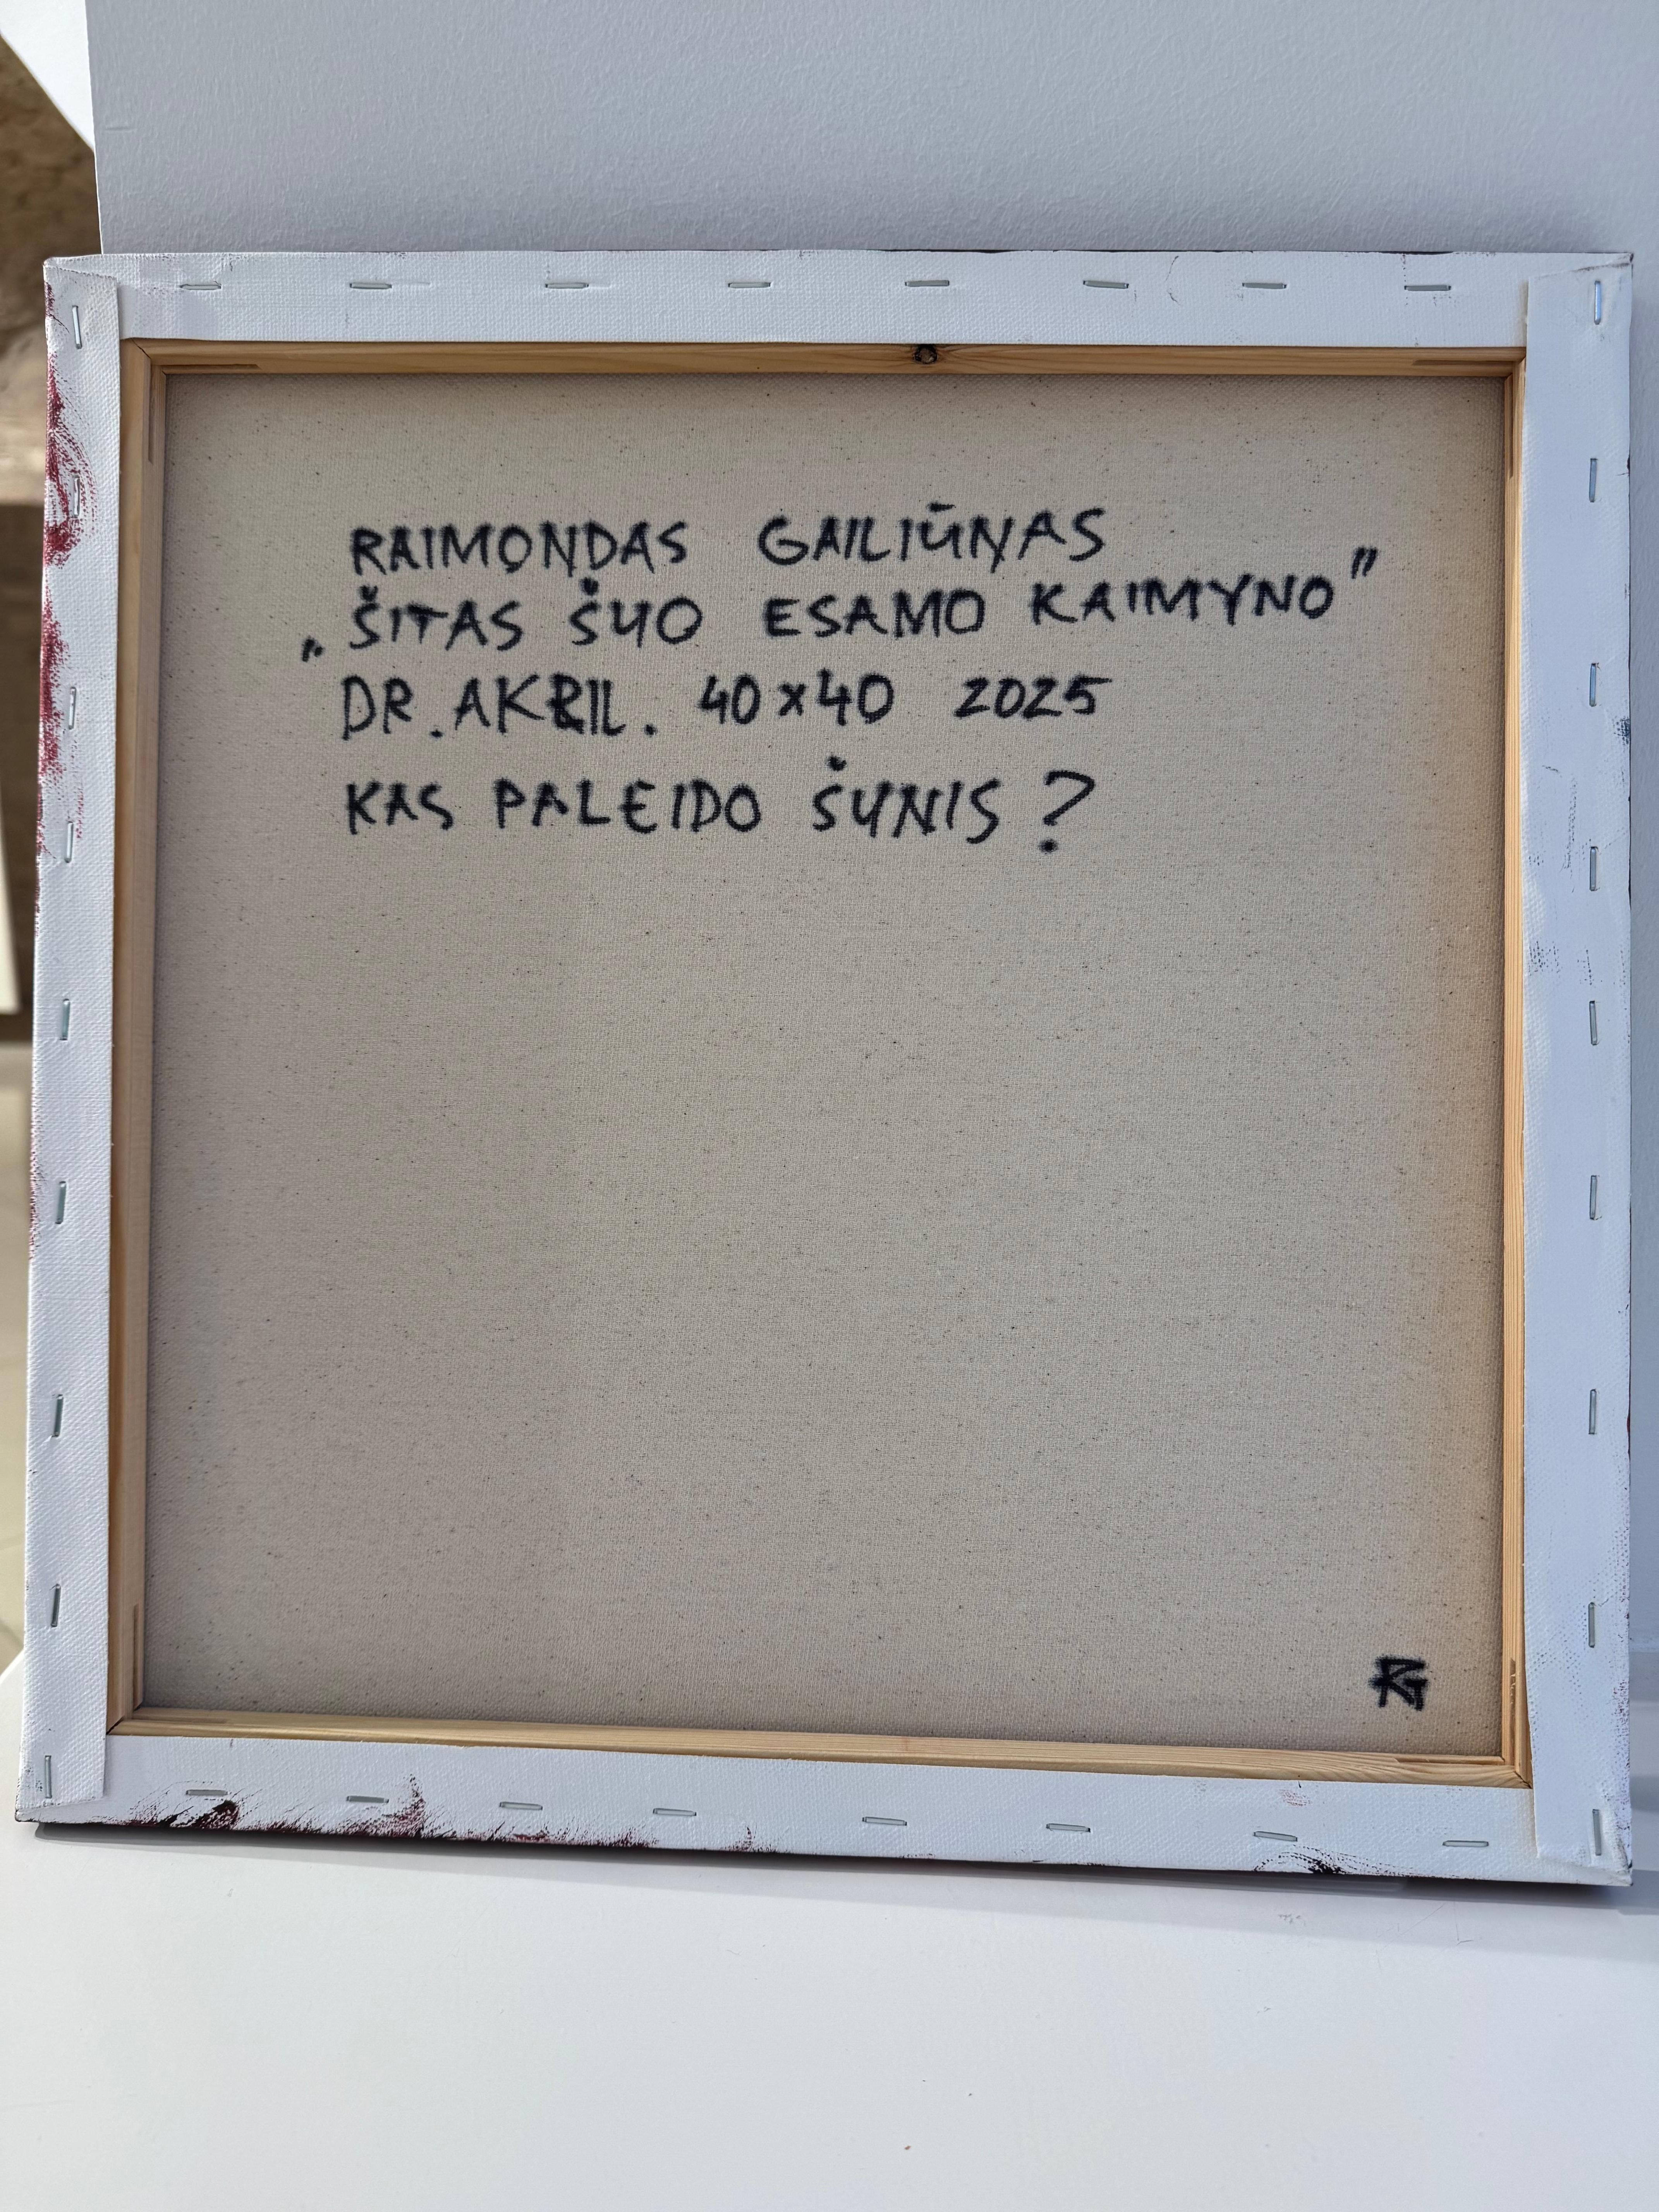 RAIMONDAS GAILIŪNAS
„ŠITAS ŠUO ESAMO KAIMYNO"
DR. AKRIL. 40x40 2025
KAS PALEIDO ŠUNIS?
RG